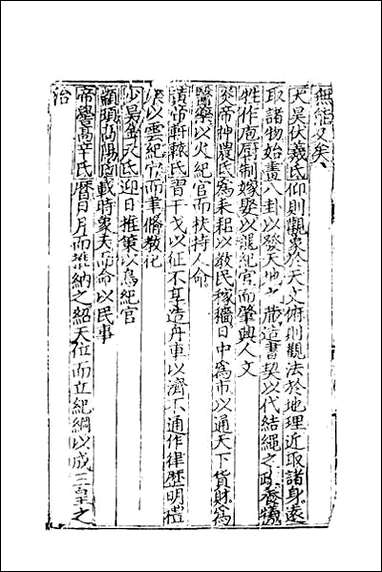 無偣又矣
大昊伏羲氏仰則觀象於天文俯則觀法於地理近取諸身遠
取諸物始畫八卦以發天地之造書契以代結繩之政養犧
牲作庖厨制嫁娶以龍紀官而肇興人文
炎帝神農氏爲耒耜以教民稼穡日中爲市以通天下貨財爲
醫藥以火紀官而扶持人命
黃帝軒轅氏習干戈以征不享造舟車以濟不通作律歷明禮
樂以雲紀官而筆脩教化
少昊金天氏迎日推策以鳥紀官
顓頊高陽氏載時象天而命以民事
帝嚳高辛氏曆日月而迎納之紹天位而立紀綱以成三皇之
治